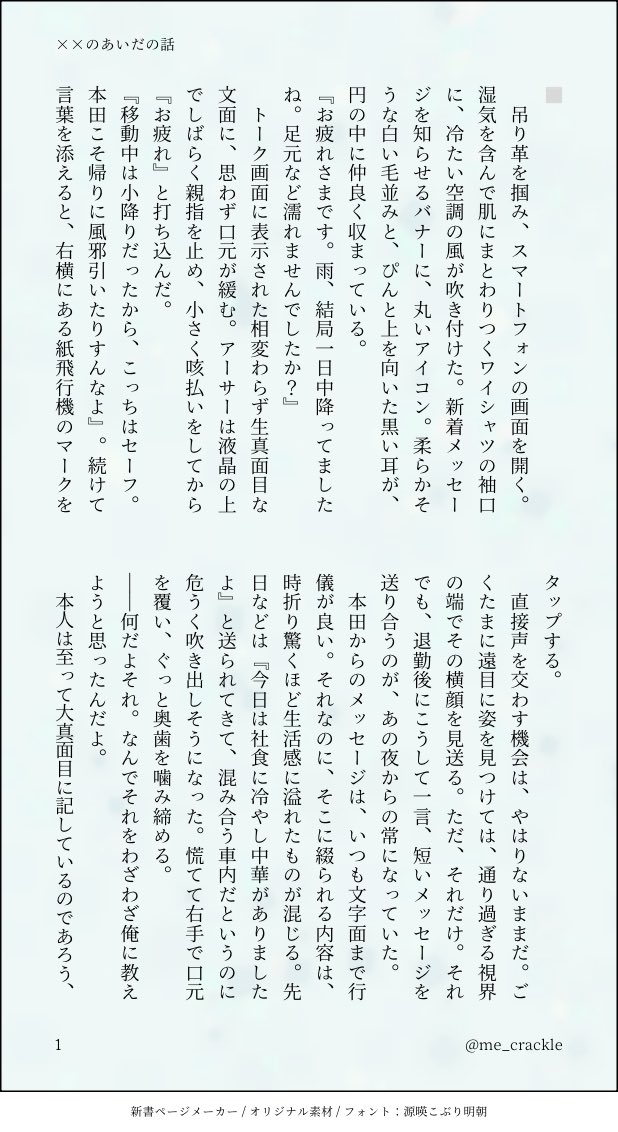 ××のあいだの話
　吊り革を掴み、スマートフォンの画面を開く。
湿気を含んで肌にまとわりつくワイシャツの袖口
に、冷たい空調の風が吹き付けた。新着メッセー
ジを知らせるバナーに、丸いアイコン。柔らかそ
うな白い毛並みと、ぴんと上を向いた黒い耳が、
円の中に仲良く収まっている。
『お疲れさまです。雨、結局一日中降ってました
ね。足元など濡れませんでしたか？』
　トーク画面に表示された相変わらず生真面目な
文面に、思わず口元が緩む。アーサーは液晶の上
でしばらく親指を止め、小さく咳払いをしてから
『お疲れ』と打ち込んだ。
『移動中は小降りだったから、こっちはセーフ。
本田こそ帰りに風邪引いたりすんなよ』。続けて
言葉を添えると、右横にある紙飛行機のマークを
タップする。
　直接声を交わす機会は、やはりないままだ。ご
くたまに遠目に姿を見つけては、通り過ぎる視界
の端でその横顔を見送る。ただ、それだけ。それ
でも、退勤後にこうして一言、短いメッセージを
送り合うのが、あの夜からの常になっていた。
　本田からのメッセージは、いつも文字面まで行
儀が良い。それなのに、そこに綴られる内容は、
時折り驚くほど生活感に溢れたものが混じる。先
日などは『今日は社食に冷やし中華がありました
よ』と送られてきて、混み合う車内だというのに
危うく吹き出しそうになった。慌てて右手で口元
を覆い、ぐっと奥歯を噛み締める。
──何だよそれ。なんでそれをわざわざ俺に教え
ようと思ったんだよ。
　本人は至って大真面目に記しているのであろう、
1
@me_crackle
新書ページメーカー / オリジナル素材 / フォント：源暎こぶり明朝